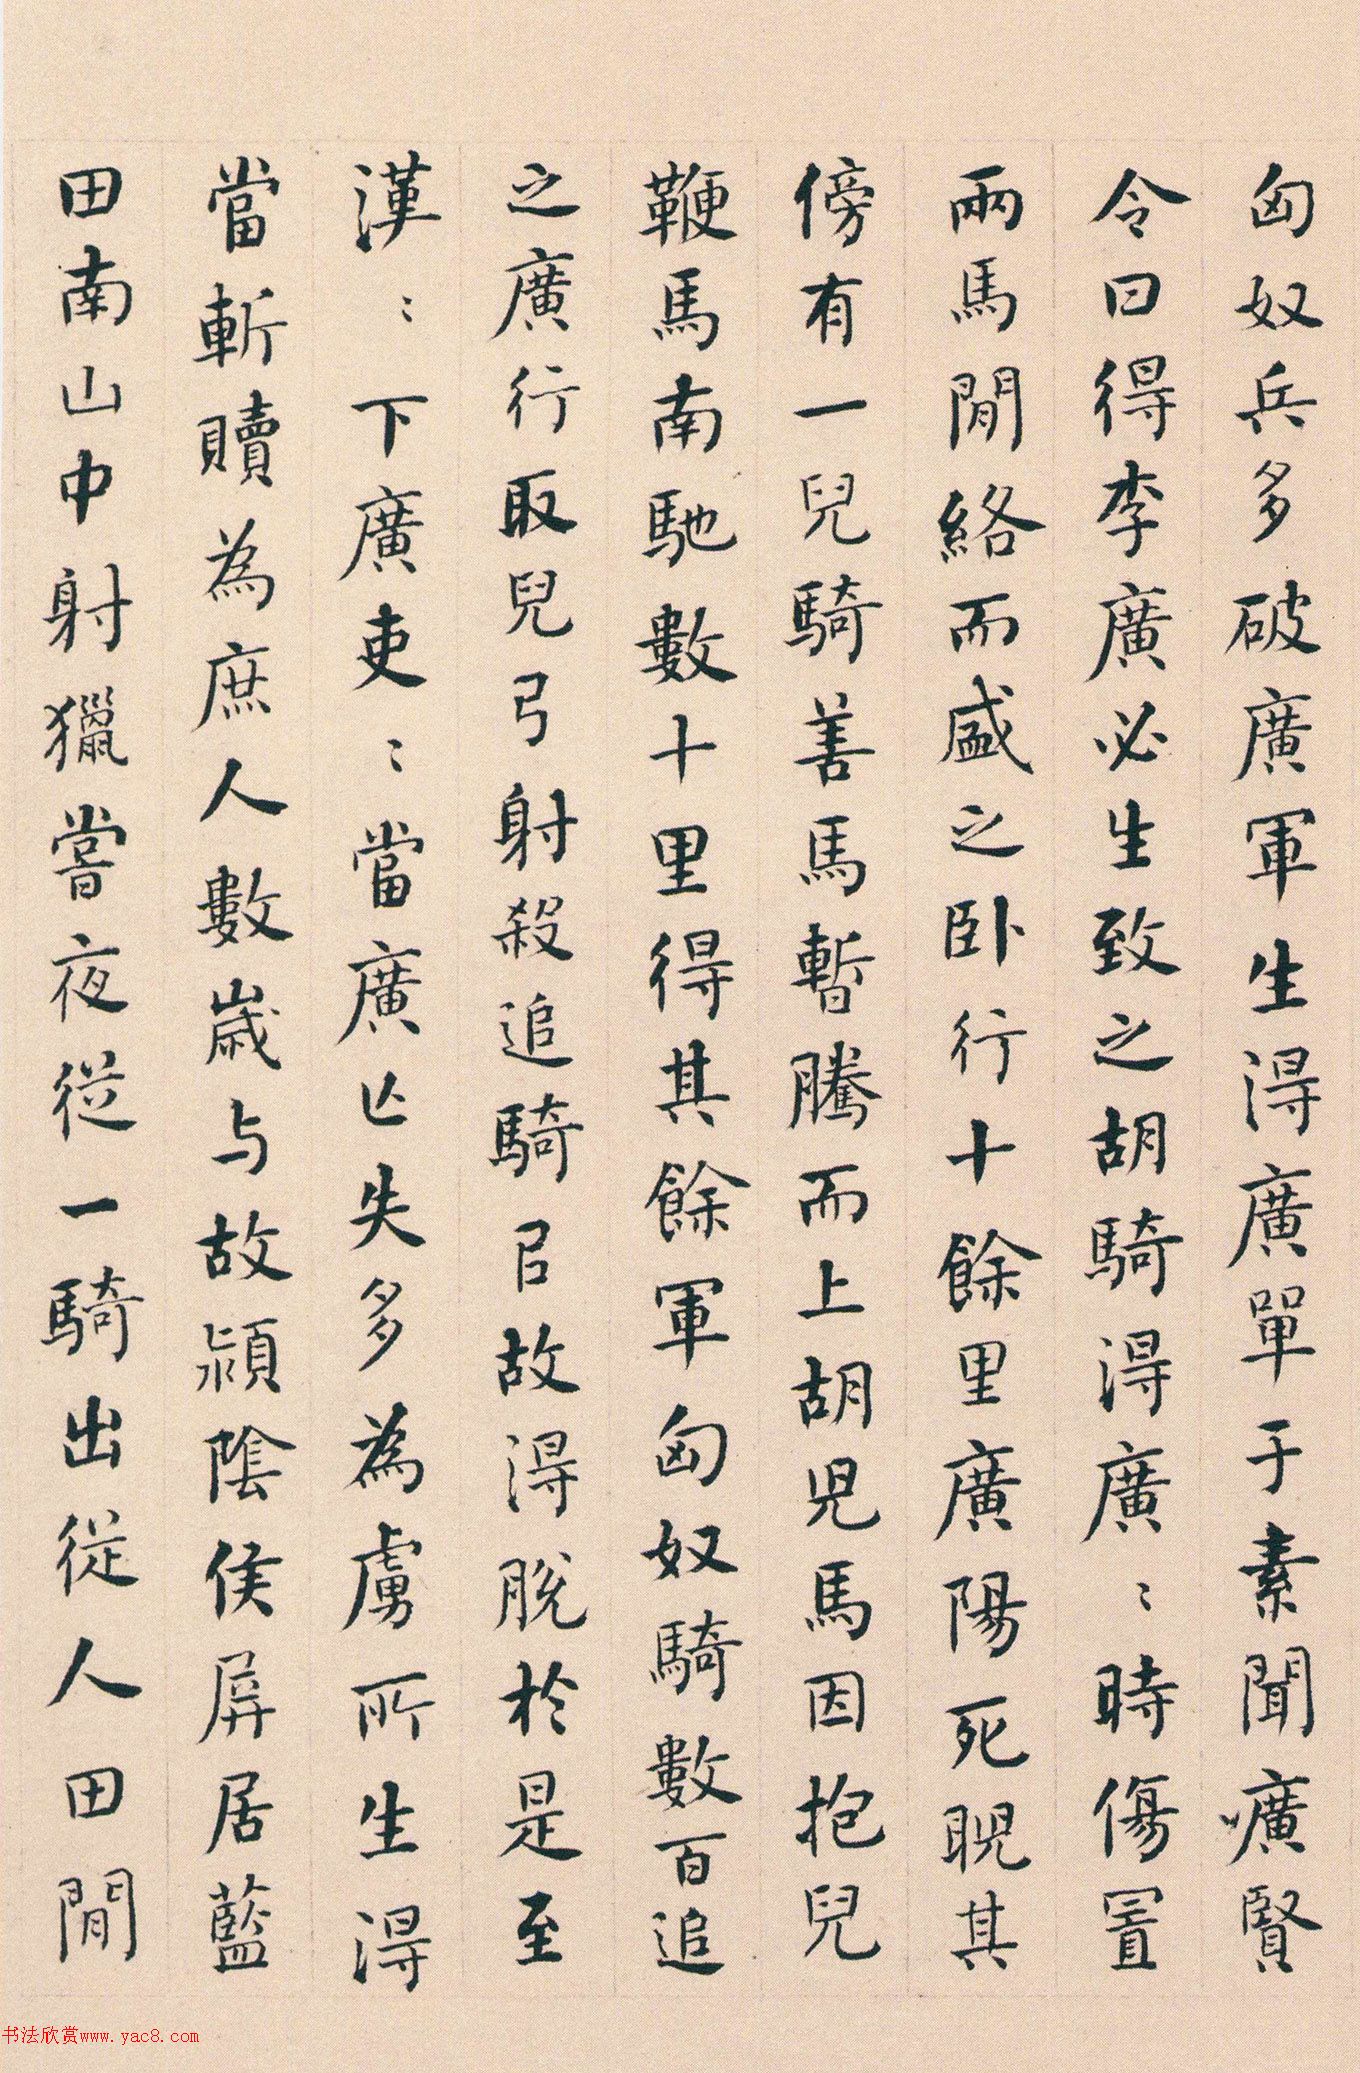 匈奴兵多破廣軍生得廣單于素聞廣賢
令曰得李廣必生致之胡騎得廣〻時傷置
兩馬間絡而盛之卧行十餘里廣陽死睨其
傍有一兒騎善馬暫騰而上胡兒馬因抱兒
鞭馬南馳數十里得其餘軍匈奴騎數百追
之廣行取兒弓射殺追騎㠯故得脫於是至
漢〻下廣吏〻當廣亾失多為虜所生得
當斬贖為庶人數歲与故潁陰侯屏居藍
田南山中射獵嘗夜從一騎出從人田間
书法欣赏www.yac8.com